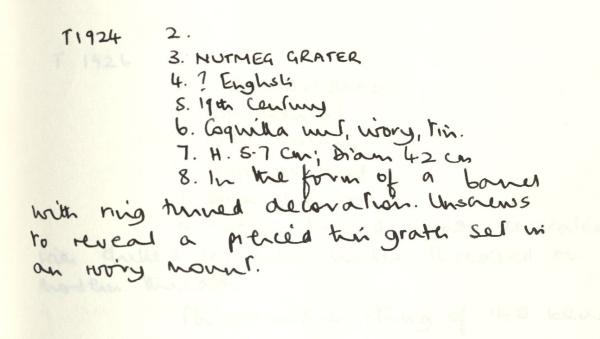 T1924 2.
3. NUTMEG GRATER
4. ? English
5. 19th Century
6. Coquilla nut, ivory, tin.
7. H. 5.7 cm; Diam 4.2 cm
8. In the form of a barrel
with ring turned decoration. Unscrews
to reveal a pierced tin grater set in
an ivory mount.